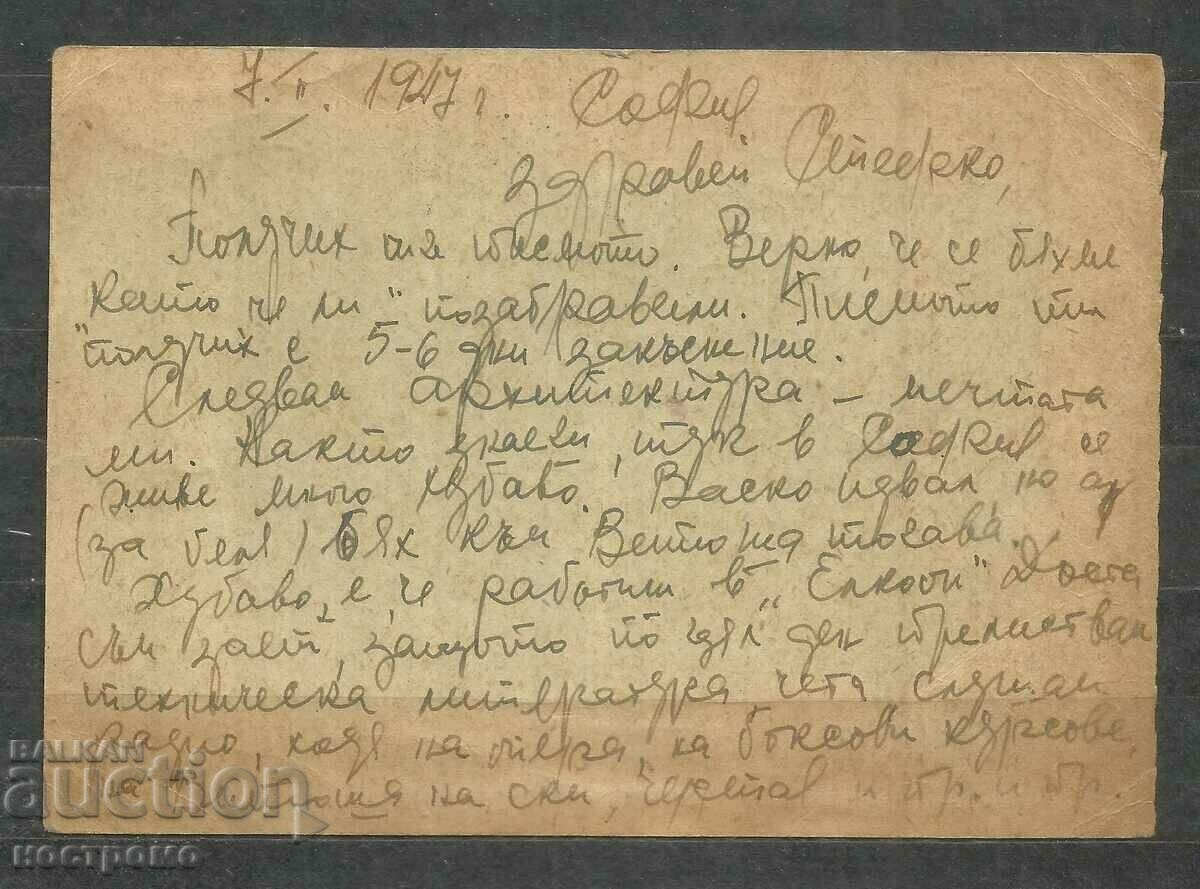 7.II.1947 г. София
Здравей Стефко,
Получих ти писмото. Верно, че се бяхме
"като че ли" позабравили. Писмото ти
получих с 5-6 дни закъснение.
Следвам архитектура - мечтата
ми. Както знаеш, тук в София се
живе много хубаво. Васко идвал но аз
(за беля) бях към Витоша тогава.
Хубаво, е, че работиш в "Елкоп" Доста
съм зает, защото по цял ден прелиствам
техническа литература, чета слушам
радио, ходя на опера, на боксови курсове,
на Витоша на ски, чертая и пр. и пр.
БАЛКАН
auction
костромо